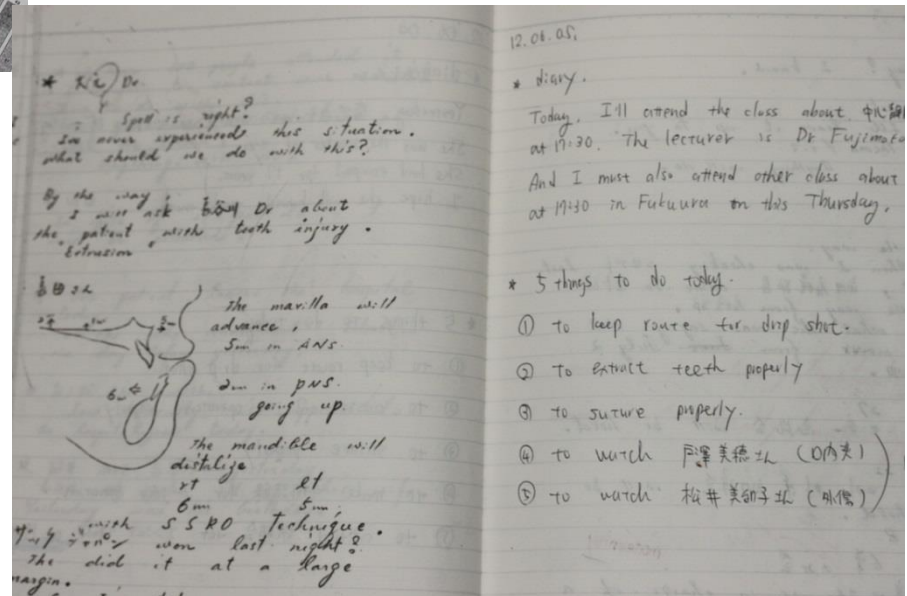 * Dr
Spell is right?
I've never experienced this situation.
what should we do with this?
By the way,
I will ask Dr about
the patient with teeth injury.
"Extrusion"
The maxilla will
advance,
5mm in ANS.
2mm in PNS.
going up.
6mm
The mandible will
distalize
rt lt
6mm 5mm,
with SSRO technique.
won last night?
The did it at a large
margin.
12.06.05.
* diary.
Today, I'll attend the class about
at 17:30. The lecturer is Dr Fujimoto
And I must also attend other class about
at 17:30 in Fukuura on this Thursday.
* 5 things to do today.
① to keep route for drip shot.
② to extract teeth properly
③ to suture properly.
④ to watch 戸澤美穂さん (口内炎)
⑤ to watch 松井美智子さん (外傷)